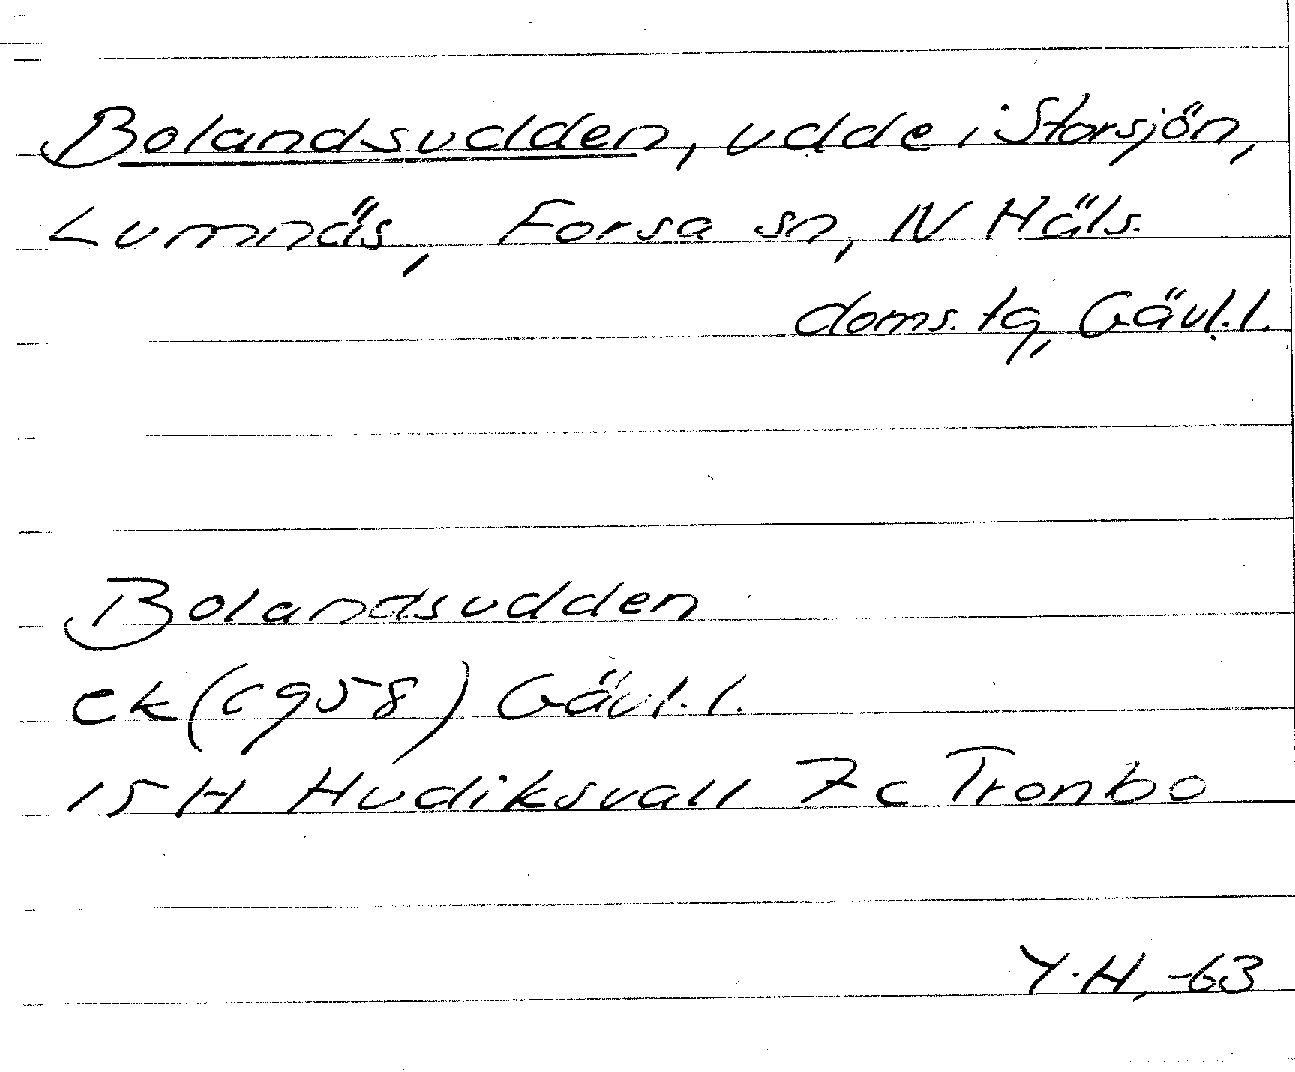 Bolandsudden, udde i Storsjön,
Lumnäs, Forsa sn, N Häls.
doms. tg, Gävl. l.
Bolandsudden
ek (c 958) Gävl. l.
15 H Hudiksvall 7c Tronbo
Y. H, -63